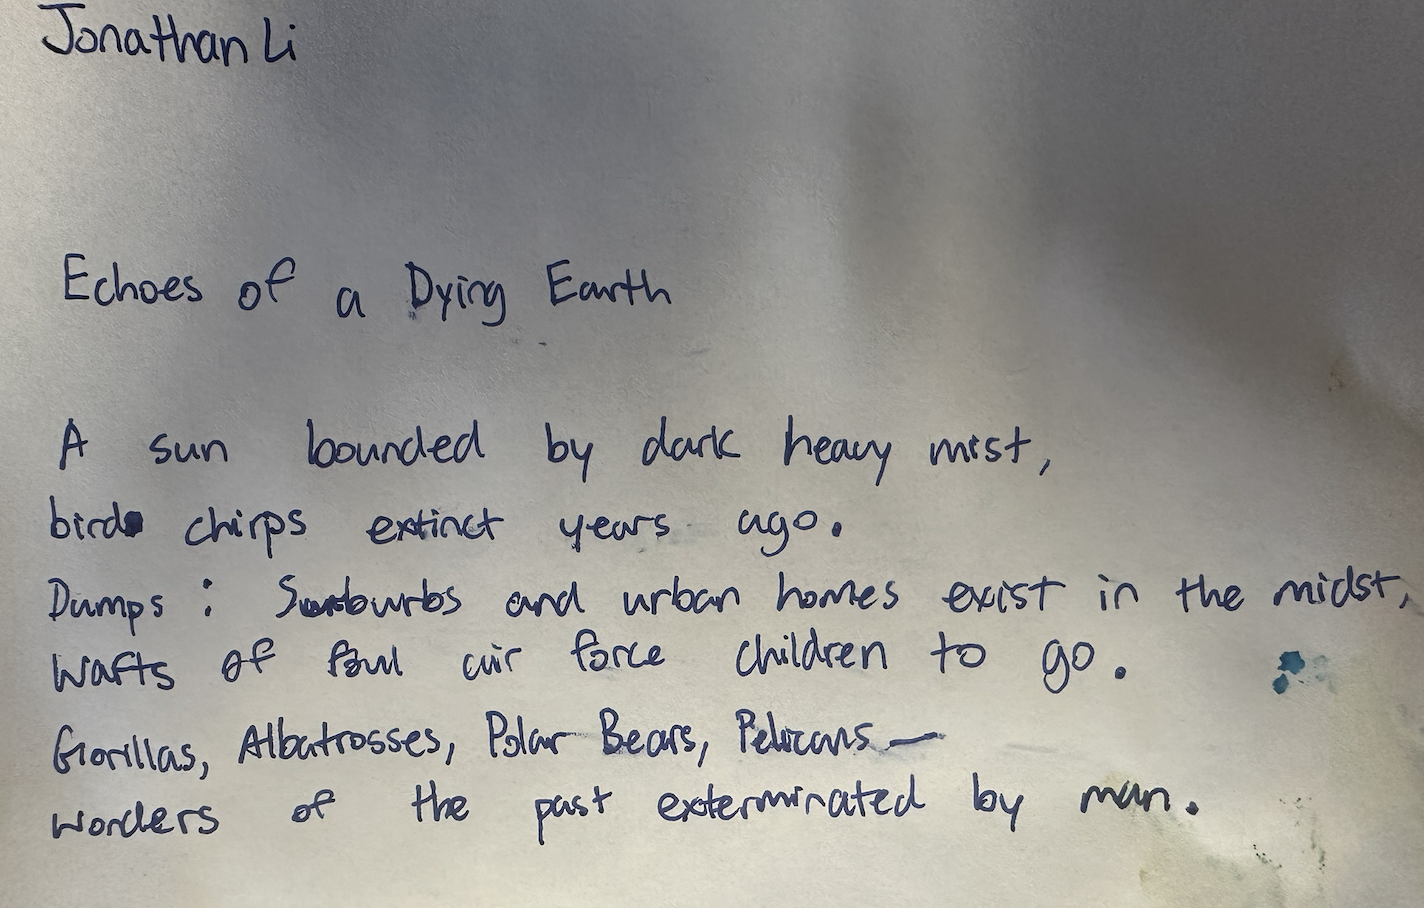 Jonathan Li
Echoes of a Dying Earth
A sun bounded by dark heavy mist,
bird chirps extinct years ago.
Dumps: Suburbs and urban homes exist in the midst,
Wafts of foul air force children to go.
Gorillas, Albatrosses, Polar Bears, Pelicans—
wonders of the past exterminated by man.